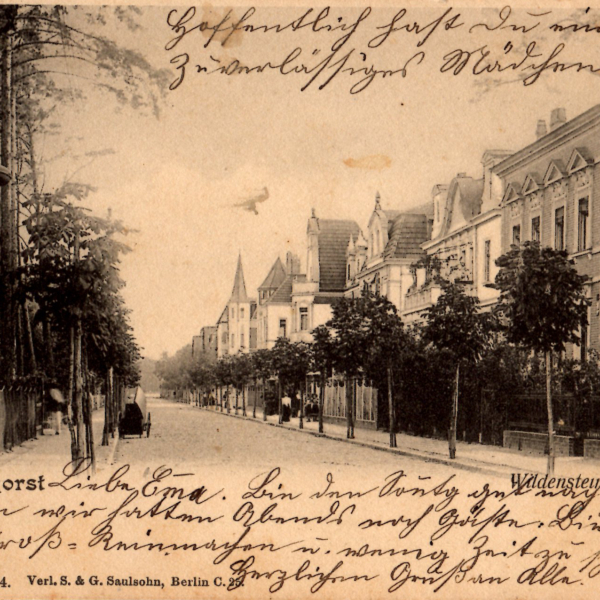 Hoffentlich hast Du ein
Zuverlässiges Mädchen
orst
Wildenstein
Liebe Ema. Bin den Sontg gut nach
wir hatten Abends noch Gäste. Bin
roß=Reinmachen u. wenig Zeit zu
Herzlichen Gruß an Alle.
4. Verl. S. & G. Saulsohn, Berlin C. 25.